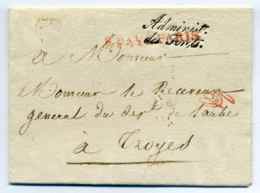 Administ.
des Forêts.
à Monsieur
Monsieur le Receveur
general du dept. de l'aube
à Troyes